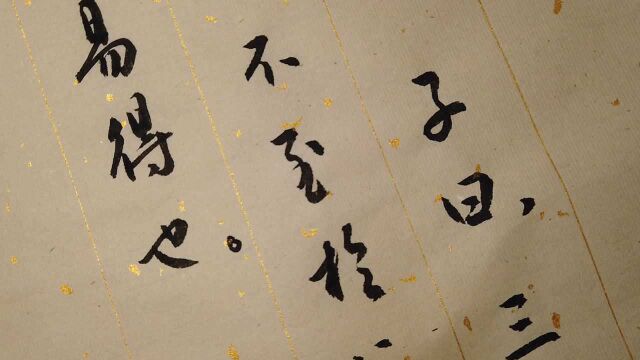 子曰，三
不至於
易得也。